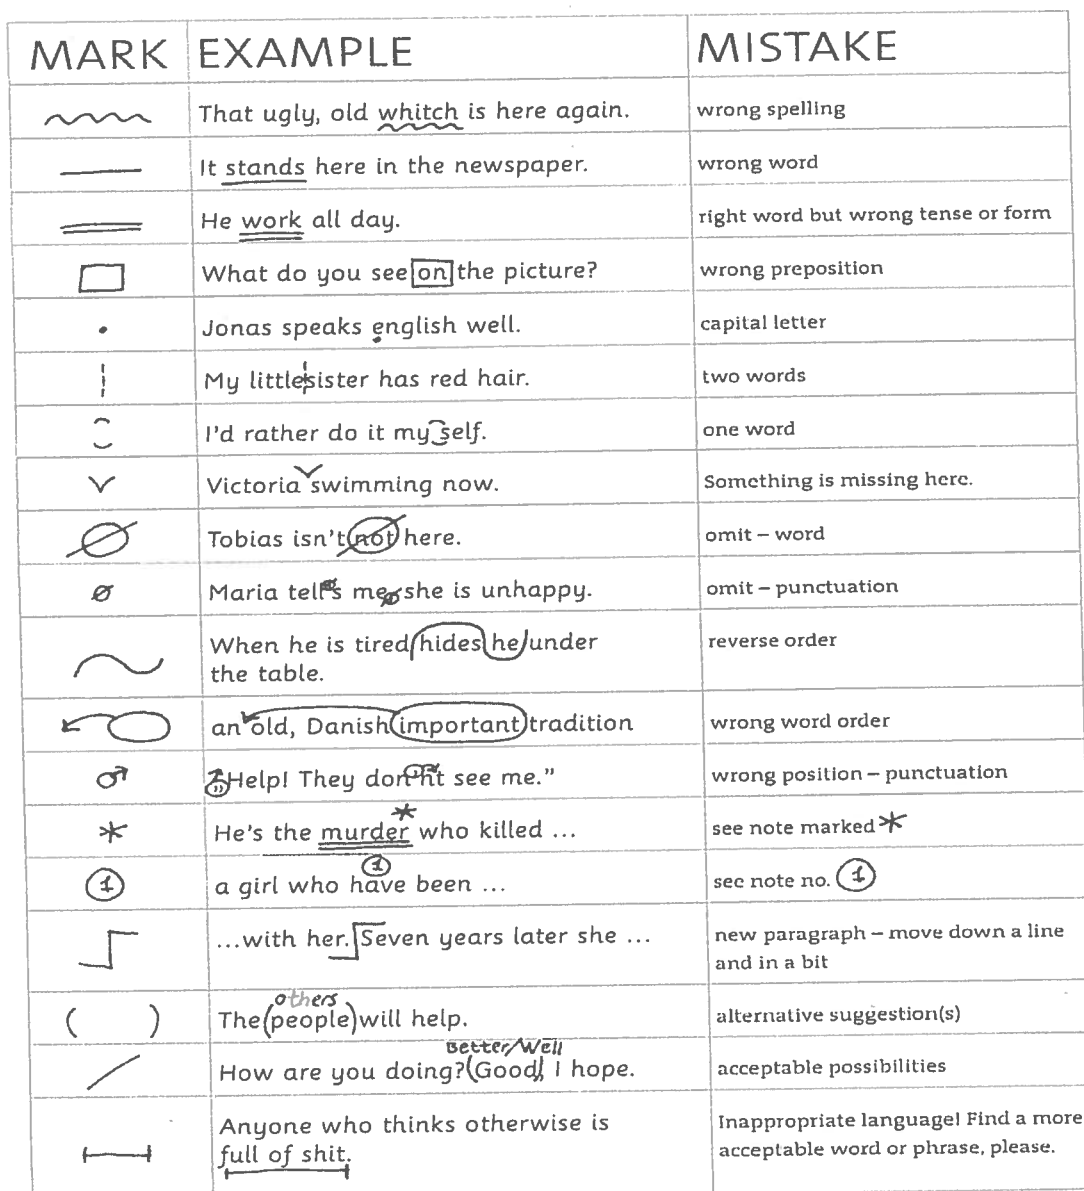 MARK EXAMPLE MISTAKE
That ugly, old whitch is here again. wrong spelling
It stands here in the newspaper. wrong word
He work all day. right word but wrong tense or form
What do you see on the picture? wrong preposition
Jonas speaks english well. capital letter
My littlesister has red hair. two words
I'd rather do it my self. one word
Victoria swimming now. Something is missing here.
Tobias isn't not here. omit – word
Maria tell's me, she is unhappy. omit – punctuation
When he is tired hides he under reverse order
the table.
an old, Danish important tradition wrong word order
"Help! They don't see me." wrong position – punctuation
He's the murder* who killed ... see note marked *
1 a girl who have been ... see note no. 1
...with her. Seven years later she ... new paragraph – move down a line
and in a bit
others
The (people) will help. alternative suggestion(s)
Better/Well
How are you doing? (Good), I hope. acceptable possibilities
Anyone who thinks otherwise is Inappropriate language! Find a more
full of shit. acceptable word or phrase, please.